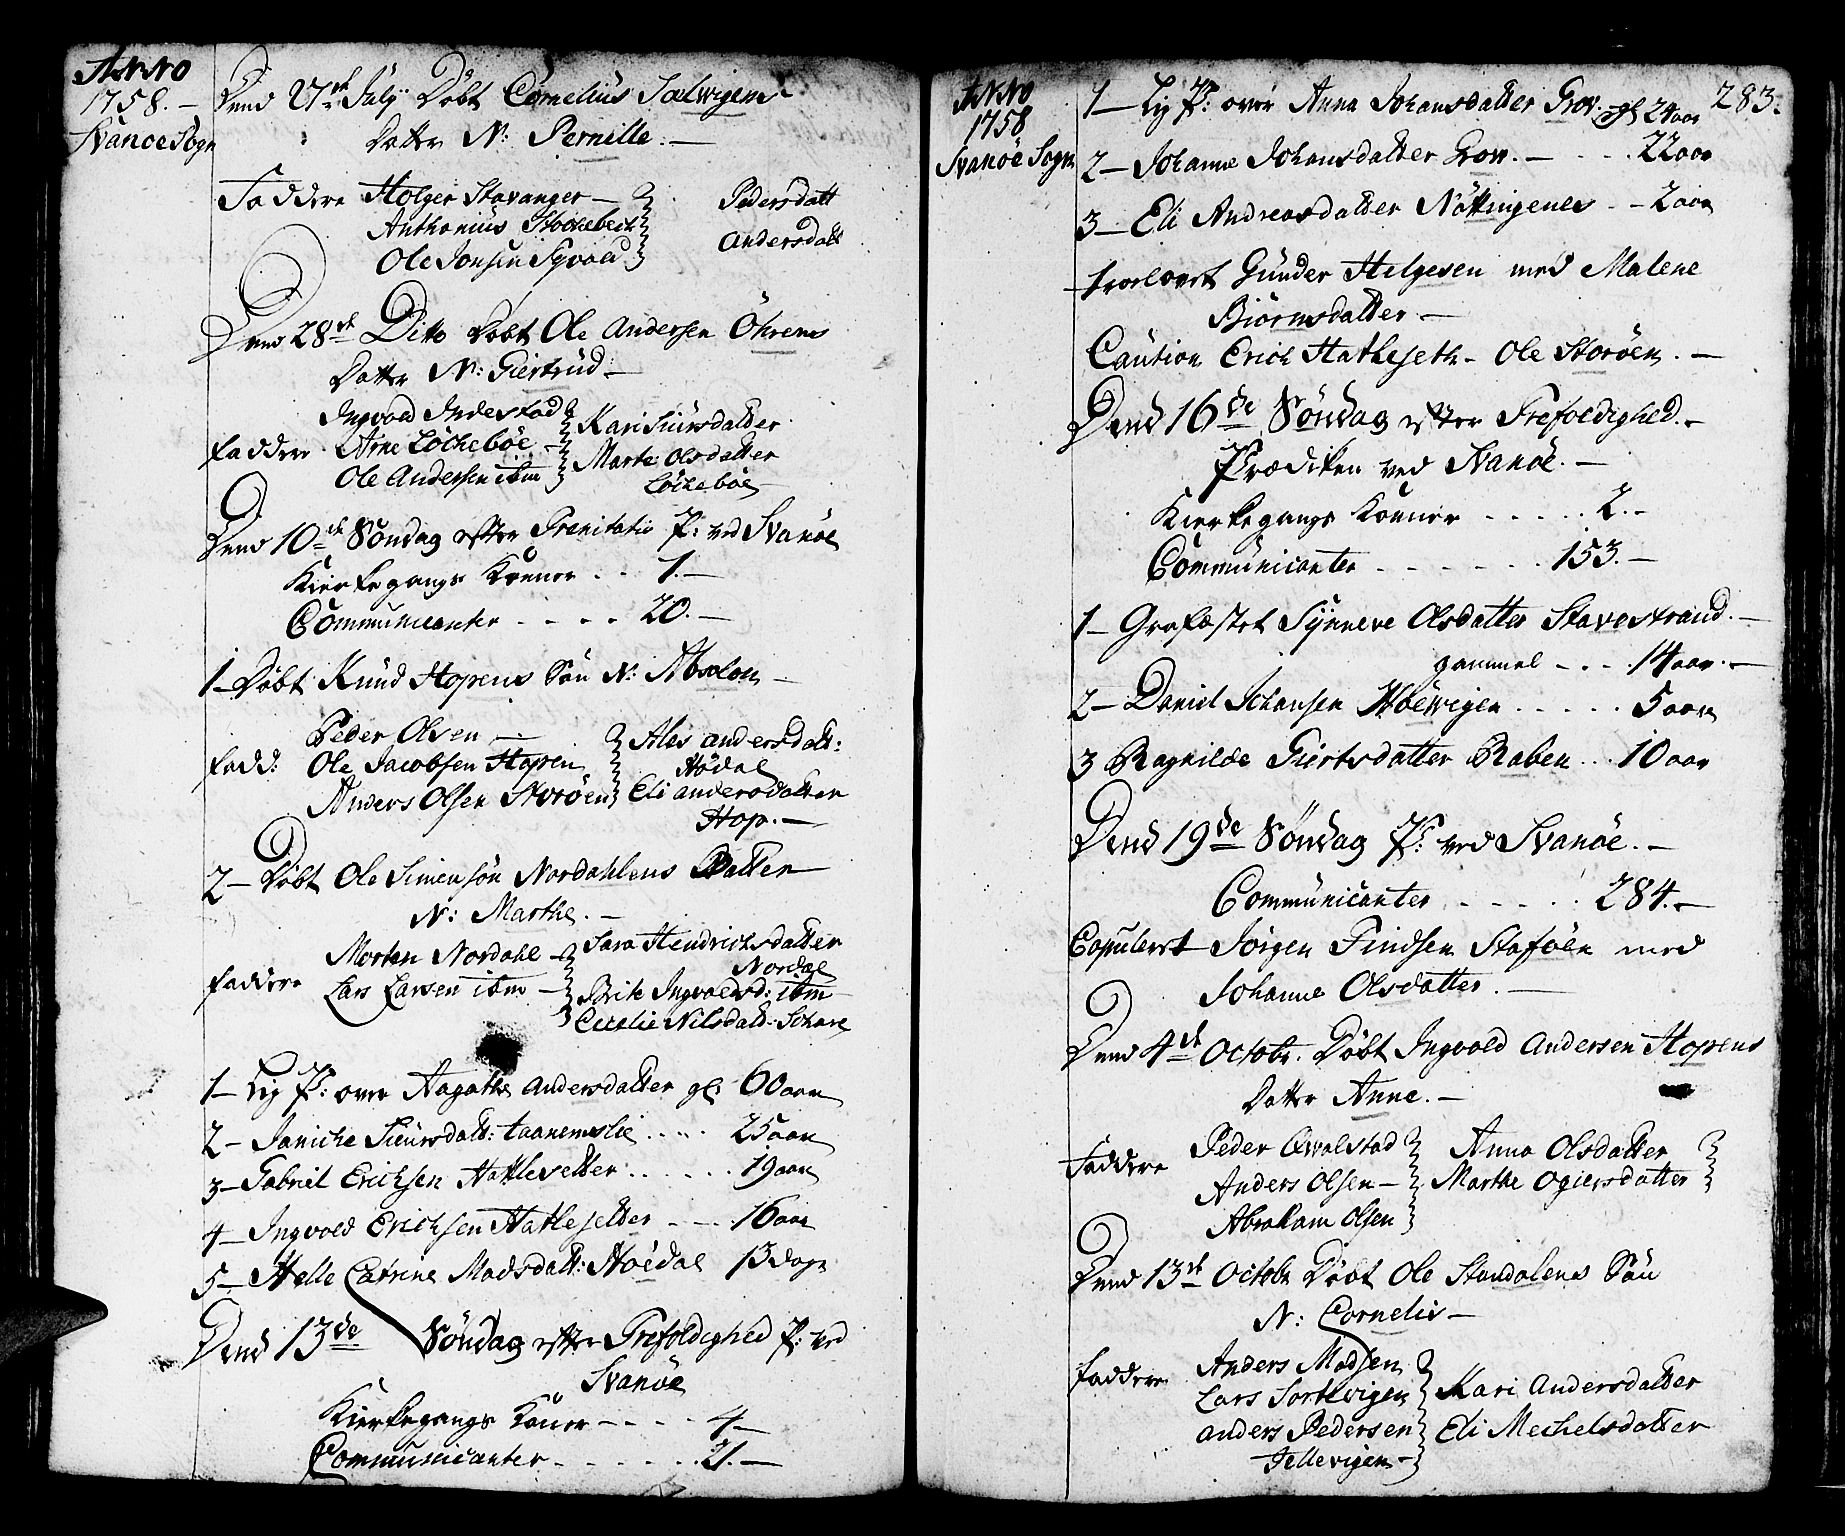 Anno
1758. —
Svanoe Sogn
Dend 27de July Döbt Cornelius Salwigens
Datter N: Pernille. —
Faddere Holger Stavanger —
Anthonius Stockebech
Ole Jonsen Sqvald
Pedersdatt
Andersdatt
Dend 28de Dito Döbt Ole Andersen Öhrens
Datter N: Giertrud —
Faddere Ingvald Indrestad
Arne Löcheböe —
Ole Andersen ibm
Kari Siursdatter
Marte Olsdatter
Löcheböe
Dend 10de Söndag efter Trenitatis P: ved Svanöe
Kierkegangs Koner . . 1. —
Communicanter - - - - 20. —
1 — Döbt Knud Hopens Sön N: Absolon —
Fadd: Peder Olsen —
Ole Jacobsen Hopen
Anders Olsen Storöen
Ales andersdatt:
Hödal
Eli andersdatter
Hop. —
2 — Döbt Ole Simensön Nordahlens Datter
N: Marthe. —
Faddere Morten Nordahl —
Lars Larsen ibm —
Sara Hendrichsdatter
Nordal
Brite Ingvoldsd: ibm
Cecelie Nilsdatt:
1 — Lig P: over Aagathe Andersdatter gl: 60 aar
2 — Janiche Siursdatt: taanemslie . . . . 25 aar
3 — Gabriel Erichsen Hatlesetter . . . . 19 aar
4 — Ingvold Erichsen Hatlesetter - - - 16 aar
5 — Helle Catrine Madsdatt: Höedal 13 dage
Dend 13de Söndag efter Trefoldighed P: ved
Svanöe
Kierkegangs Koner - - - - 4 —
Communicanter - - - - - - 21. —
Anno
1758
Svanöe Sogn
283.
1 — Lig P: over Anna Johansdatter Grov. gl 24 aar
2 — Johanne Johansdatter Grov. — - - - 22 aar
3 — Eli Andreasdatter Nöttingenes - - 2 aar
trolovet Gunder Helgesen med Malene
Biörnsdatter —
Caution Erich Hatlesetr - Ole Storöen. —
Dend 16de Söndag efter Trefoldighed. —
Prædiken ved Svanöe. —
Kierkegangs Konner - - - - - 2. -
Communicanter - - - - - - - 153. —
1 — Grafæstet Synneve Olsdatter Stavestrand. —
gammel - - - 14 aar. —
2 — Daniel Johansen Höevigen . . . . . 5 aar
3 Ragnilde Giertsdatter Raben . . . 10 aar
Dend 19de Söndag P: ved Svanöe. —
Communicanter - - - - - 284. —
Copulert Jörgen Findsen Staföen med
Johanne Olsdatter. —
Dend 4de Octobr. Döbt Ingvold Andersen Hopens
Datter Anne. —
Faddere Peder Qvalstad
Anders Olsen —
Abraham Olsen
Anna Olsdatter
Marthe Ogiersdatter
Dend 13de Octobr Döbt Ole Standalens Sön
N: Cornelis —
Faddere Anders Madsen
Lars Sortevigen
anders Pedersen
Tellevigen —
Kari Andersdatter
Eli Mechelsdatter